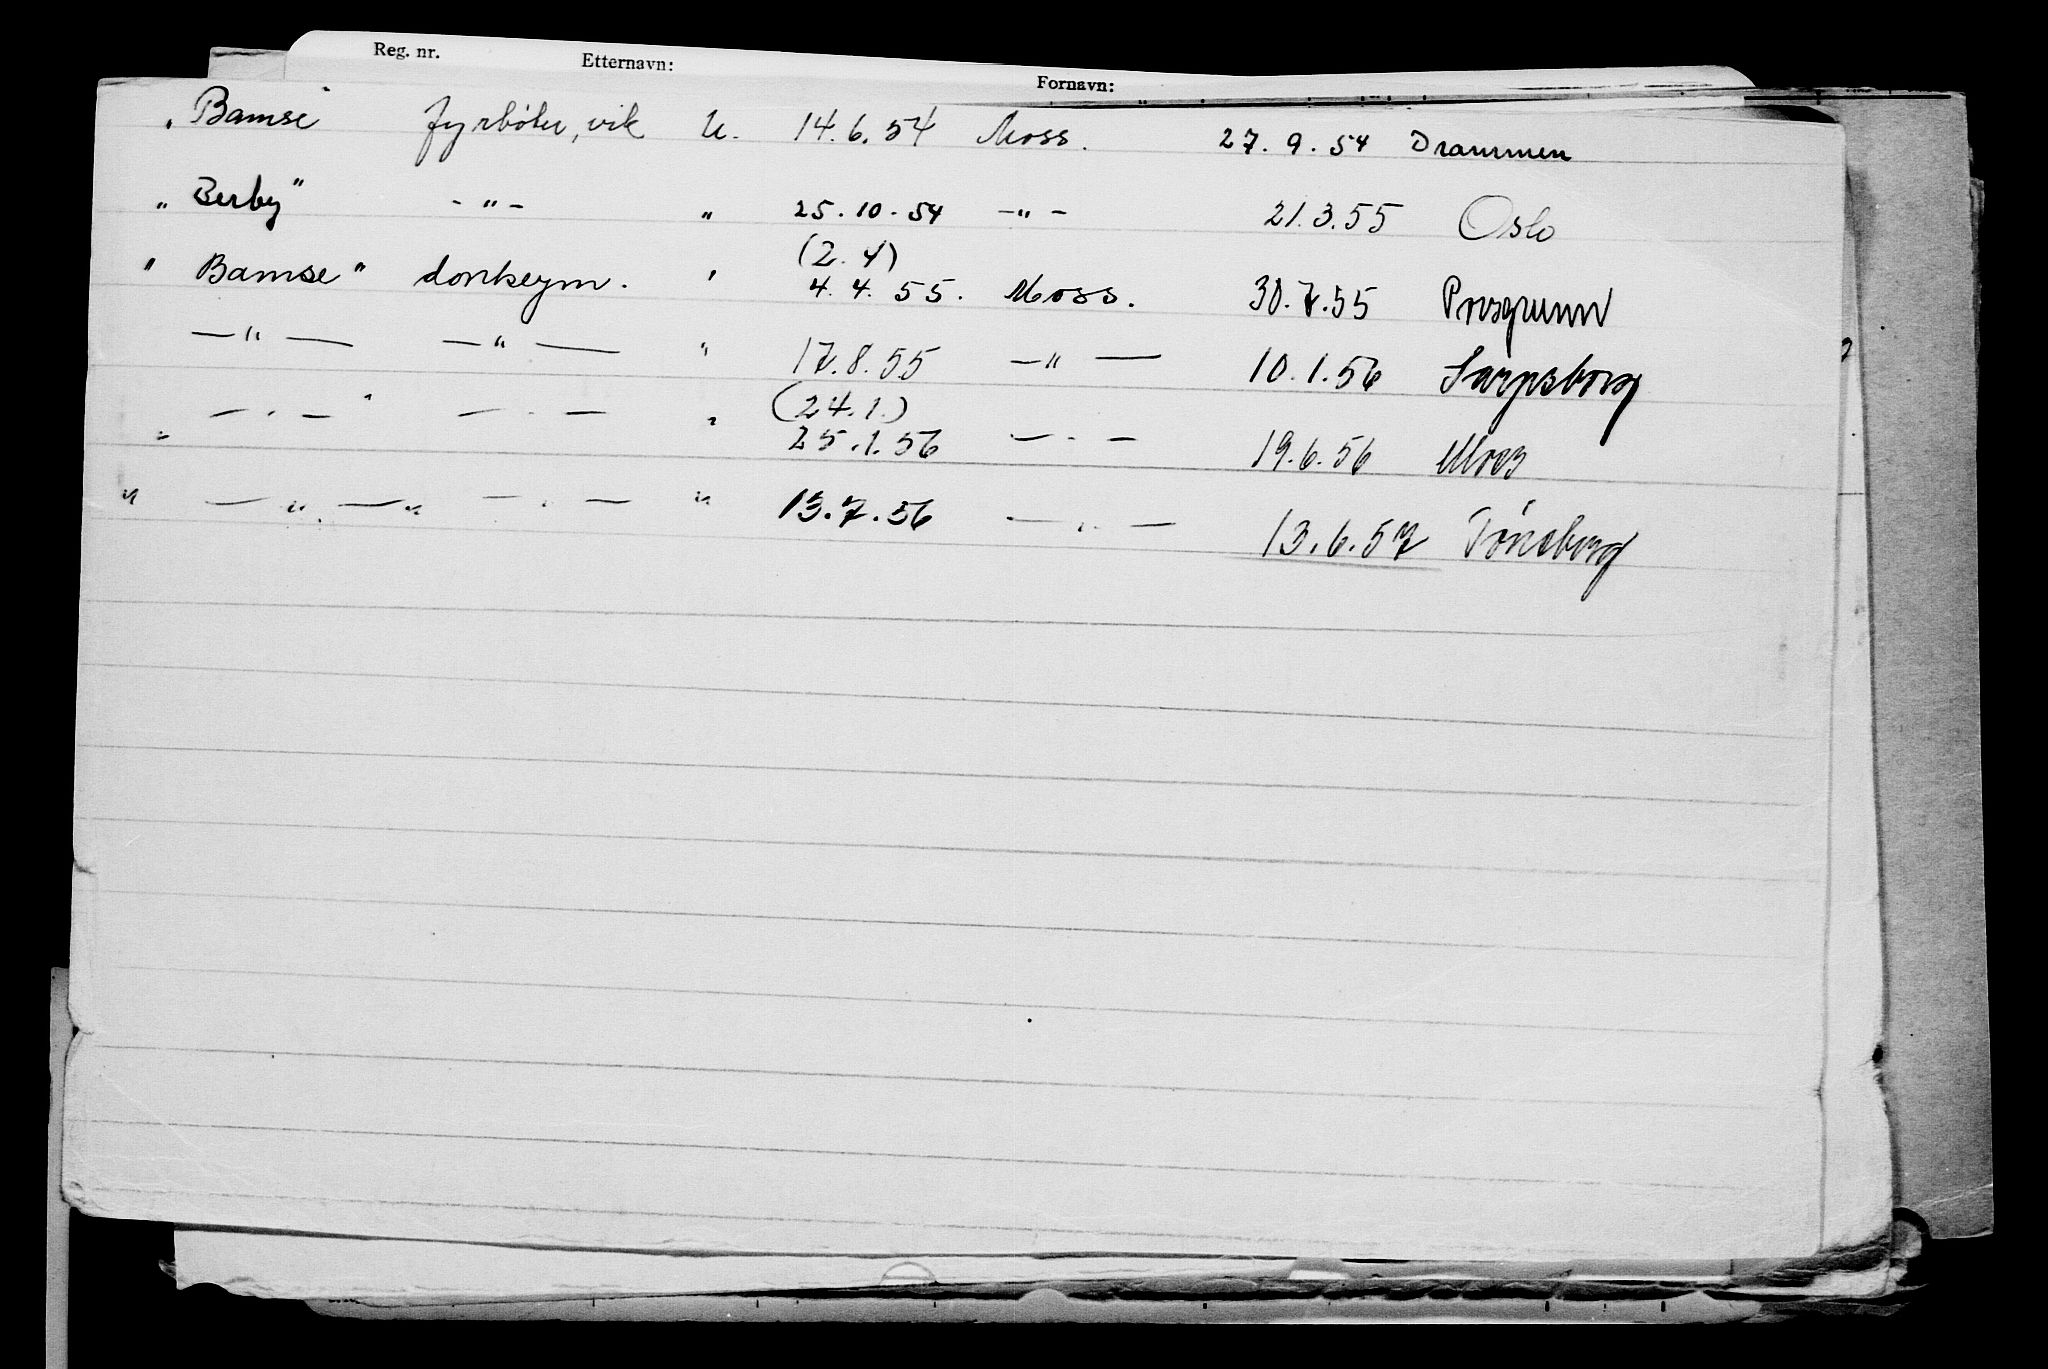 Reg. nr. Etternavn: Fornavn:
„Bamse" fyrbøter, vik U. 14.6.54 Moss. 27.9.54 Drammen
„Berby" -"- " 25.10.54 -"- 21.3.55 Oslo
(2.4)
„Bamse" donkeym. " 4.4.55. Moss. 30.7.55 Porsgrunn
—"— —"— " 17.8.55 —"— 10.1.56 Sarpsborg
(24.1.)
„ —"—" —"— " 25.1.56 —"— 19.6.56 Moss
" —"—" —"— " 13.7.56 —"— 13.6.57 Tønsberg